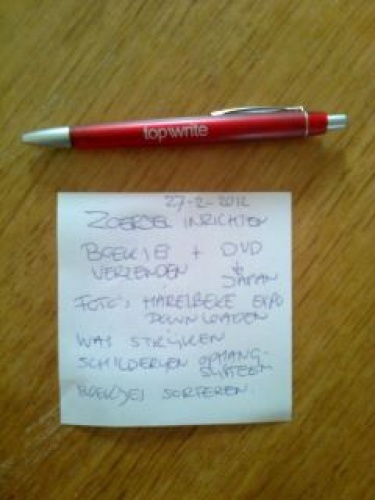 topwrite
27-2-2012
ZOERSEL INRICHTEN
BOEKJE + DVD
VERZENDEN ↓
JAPAN
FOTO'S HARELBEKE EXPO
DOWNLOADEN
WAS STRIJKEN
SCHILDERIJEN OPHANG-
SYSTEEM
BOEKJES SORTEREN.